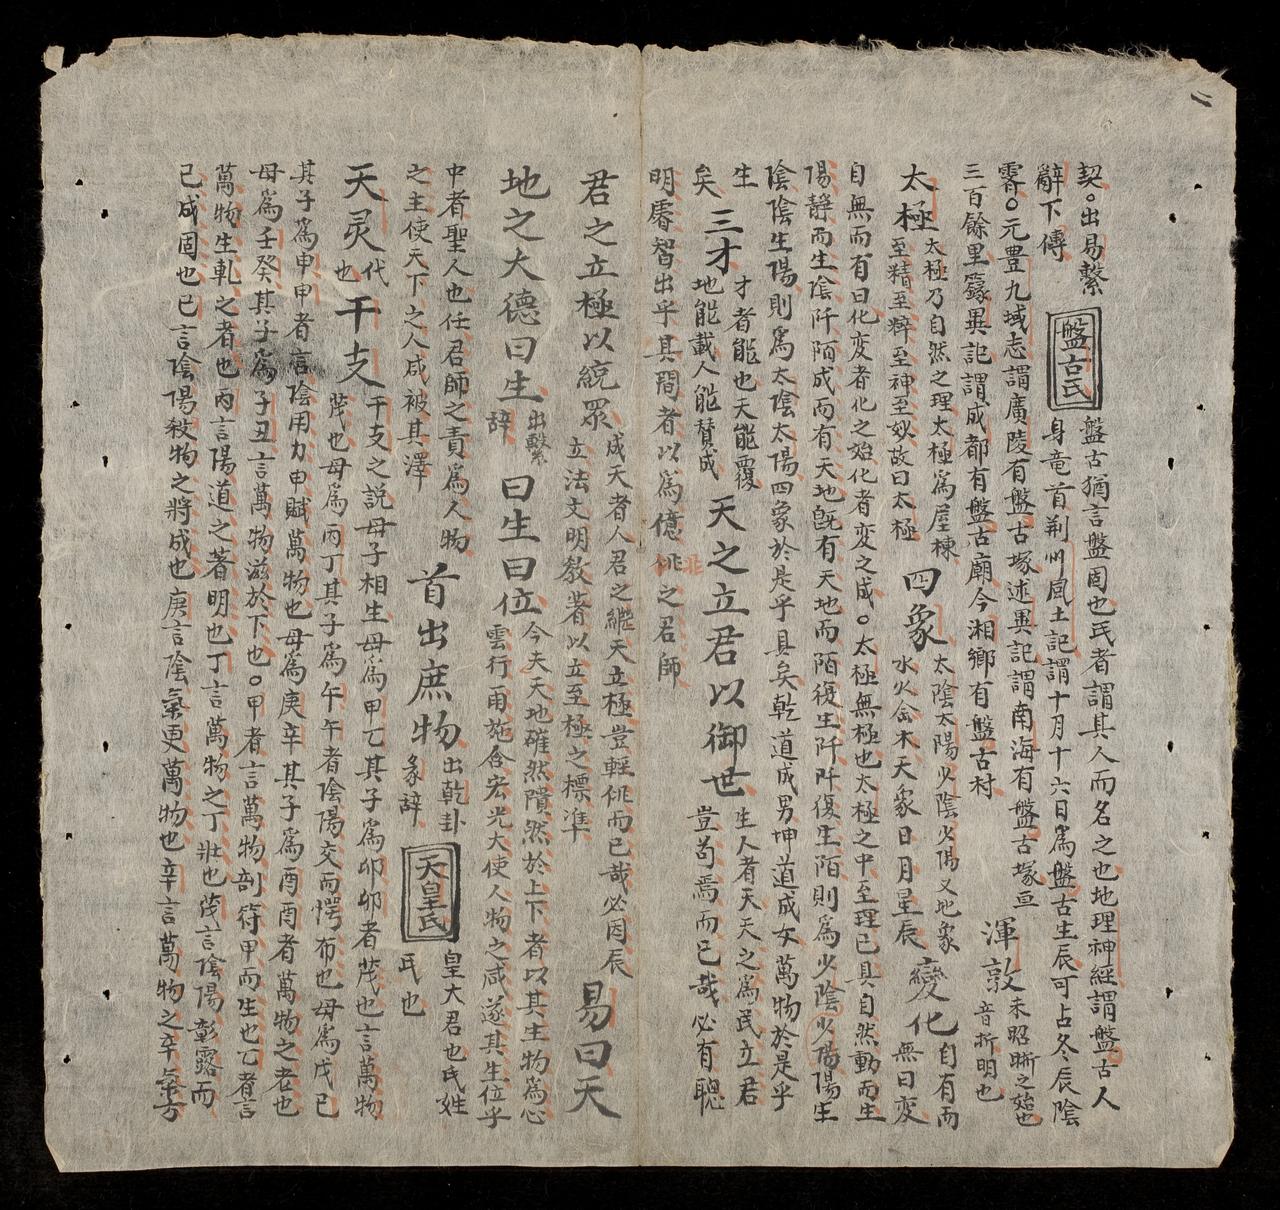 契。出易繫
辭下傳
盤古氏
盤古猶言盤固也氏者謂其人而名之也地理神經謂盤古人
身竜首荆州風土記謂十月十六日爲盤古生辰可占冬辰陰
霽。元豊九域志謂廣陵有盤古塚述異記謂南海有盤古塚亘
三百餘里籙異記謂成都有盤古廟今湘鄉有盤古村
渾敦
未昭晣之始也
音折明也
太極
太極乃自然之理太極爲屋棟
至精至粹至神至妙故曰太極
四象
太陰太陽少陰少陽又地象
水火金木天象日月星辰
變化
自有而
無曰变
自無而有曰化变者化之始化者变之成。太極無極也太極之中至理已具自然動而生
陽静而生陰阡陌成而有天地旣有天地而陌復生阡阡復生陌則爲少陰少陽陽生
陰陰生陽則爲太陰太陽四象於是乎具矣乾道成男坤道成女萬物於是乎
生
矣
三才
才者能也天能覆
地能載人能賛成
天之立君以御世
生人者天天之爲民立君
豈苟焉而已哉必有聰
明睿智出乎其間者以爲億兆之君師
君之立極以統眾
成天者人君之継天立極豈輕佻而已哉必因辰
立法文明教著以立至極之標準
易曰天
地之大德曰生
出繫
辞
曰生曰位
今夫天地確然隤然於上下者以其生物爲心
雲行雨施含宏光大使人物之咸遂其生位乎
中者聖人也任君師之責爲人物
之主使天下之人咸被其澤
首出庶物
出乾卦
彖辞
天皇氏
皇大君也氏姓
氏也
天灵
代
也
干支
干支之説母子相生母爲甲乙其子爲卯卯者茂也言萬物
茂也母爲丙丁其子爲午午者陰陽交而愕布也母爲戊己
其子爲申申者言陰用力申賦萬物也母爲庚辛其子爲酉酉者萬物之老也
母爲壬癸其子爲子丑言萬物滋於下也。甲者言萬物剖符甲而生也乙者言
萬物生軋之者也丙言陽道之著明也丁言萬物之丁壯也茂言陰陽彰露而
已成固也已言陰陽殺物之將成也庚言陰氣更萬物也辛言萬物之辛氣方